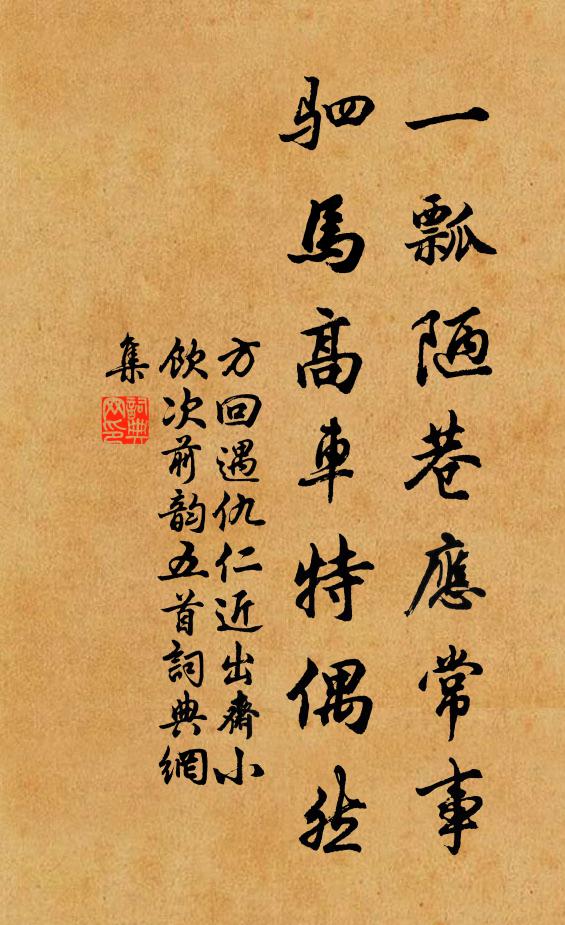 一瓢陋巷應常事
駟馬高車特偶然
方回遇仇仁近出齋小
飲次前韵五首詞典網
集
詞典
网印